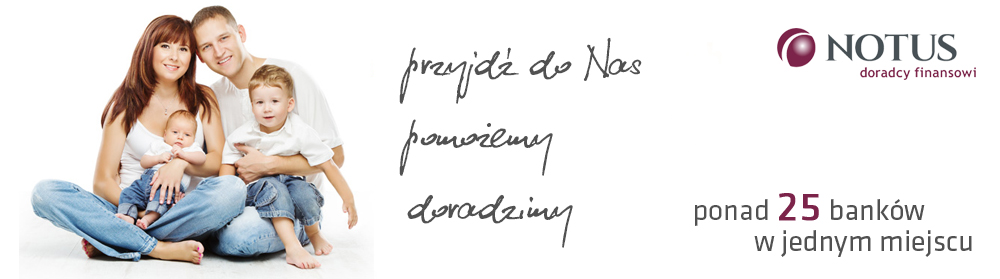 przyjdź do Nas
pomożemy
doradzimy
NOTUS
doradcy finansowi
ponad 25 banków
w jednym miejscu